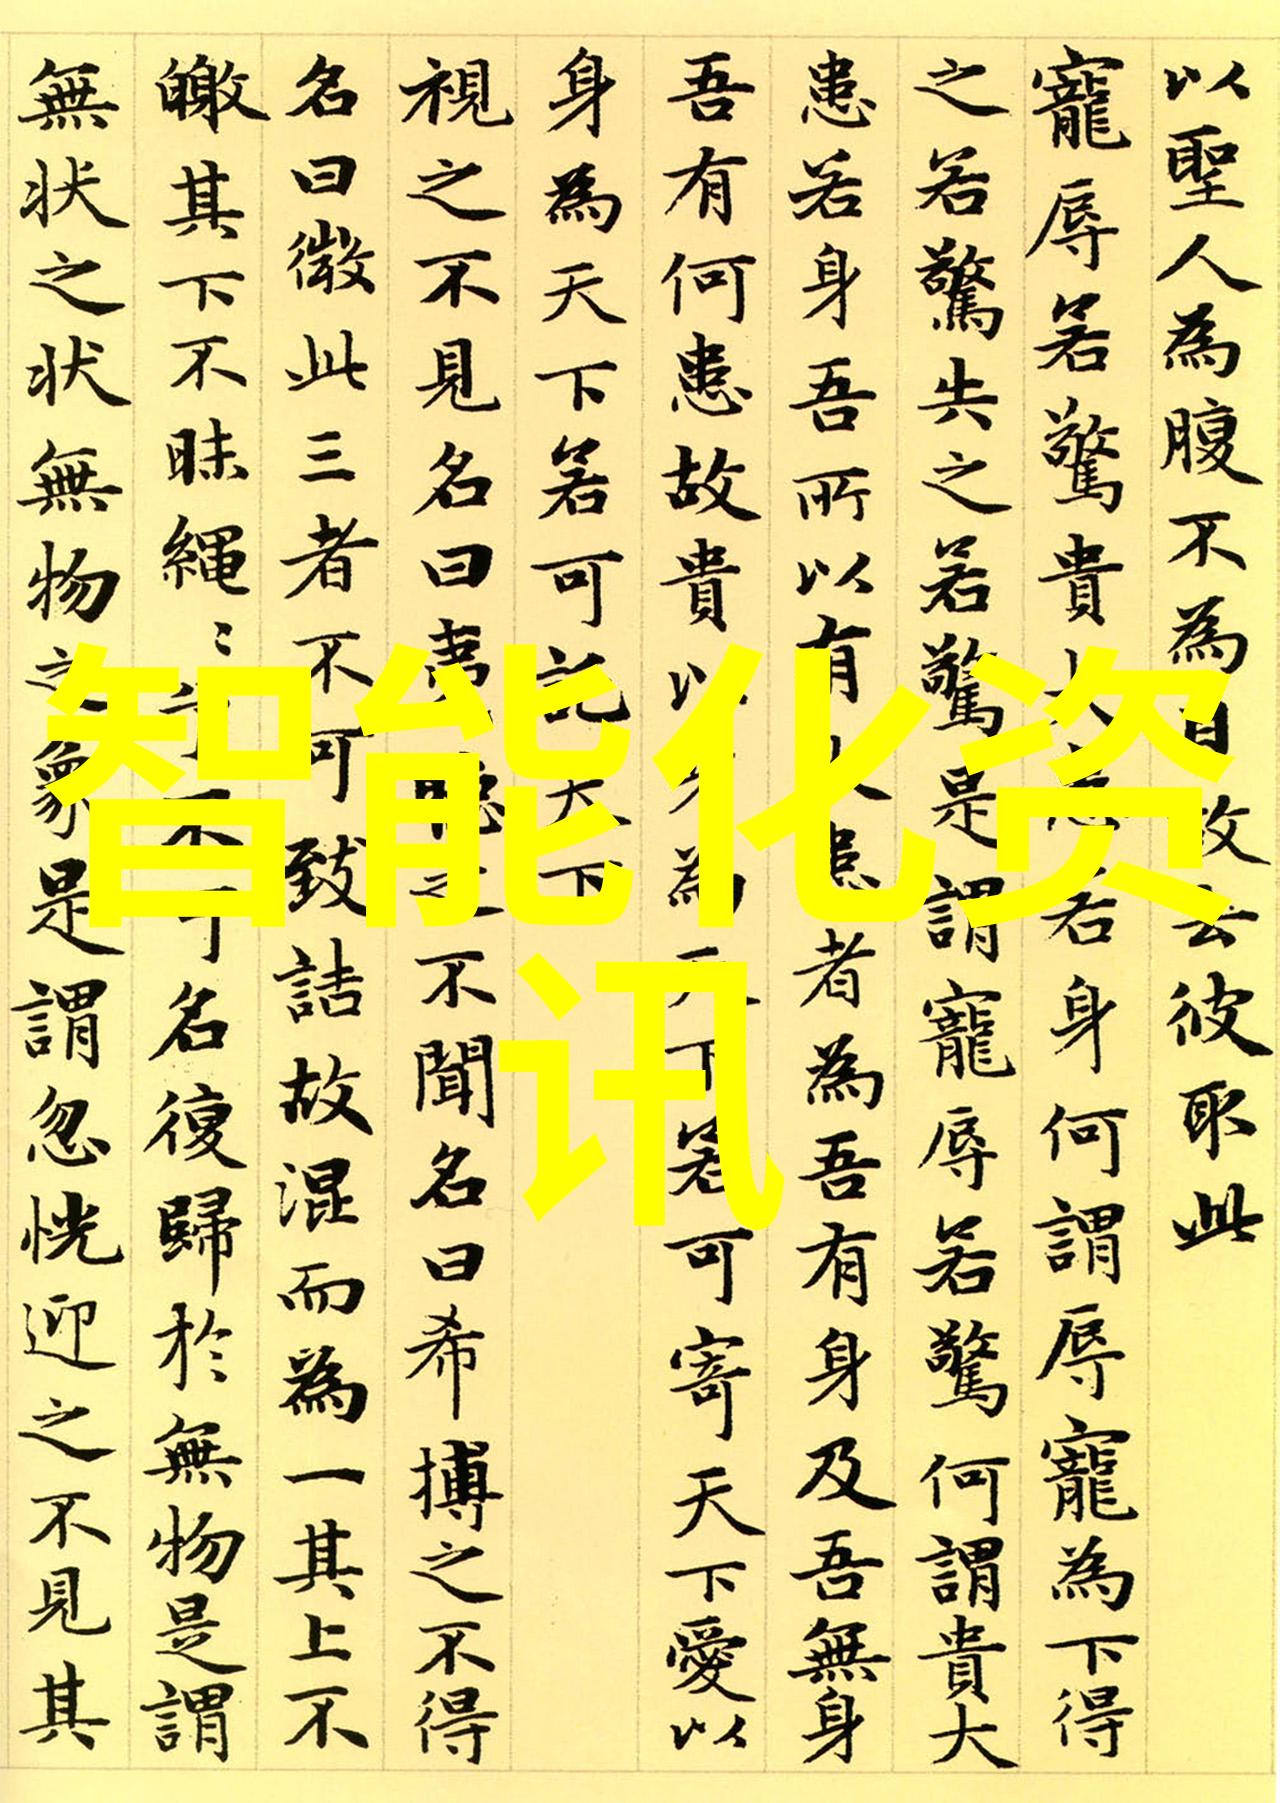 以聖人為腹不為目故去彼取此
寵辱若驚貴大患若身何謂辱寵為下得
之若驚失之若驚是謂寵辱若驚何謂貴大
患若身吾所以有大患者為吾有身及吾無身
吾有何患故貴以身為天下若可寄天下愛以
身為天下若可託天下
視之不見名曰夷聽之不聞名曰希搏之不得
名曰微此三者不可致詰故混而為一其上不
皦其下不昧繩〻不可名復歸於無物是謂
無状之状無物之象是謂忽恍迎之不見其
智能化资
讯